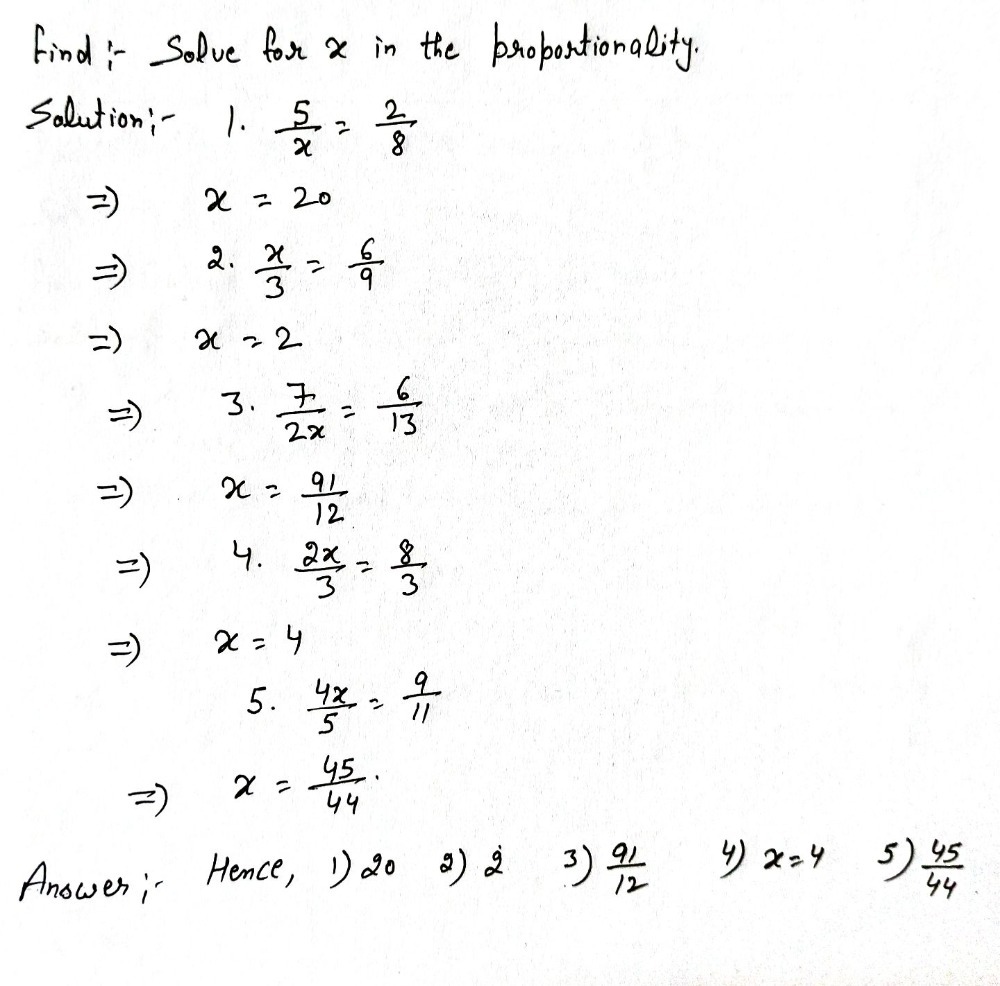 find :- Solve for x in the proportionality.
Solution :- 1. 5/x = 2/8
=) x = 20
=) 2. x/3 = 6/9
=) x = 2
=) 3. 7/2x = 6/13
=) x = 91/12
=) 4. 2x/3 = 8/3
=) x = 4
5. 4x/5 = 9/11
=) x = 45/44.
Answer :- Hence, 1) 20 2) 2 3) 91/12 4) x = 4 5) 45/44